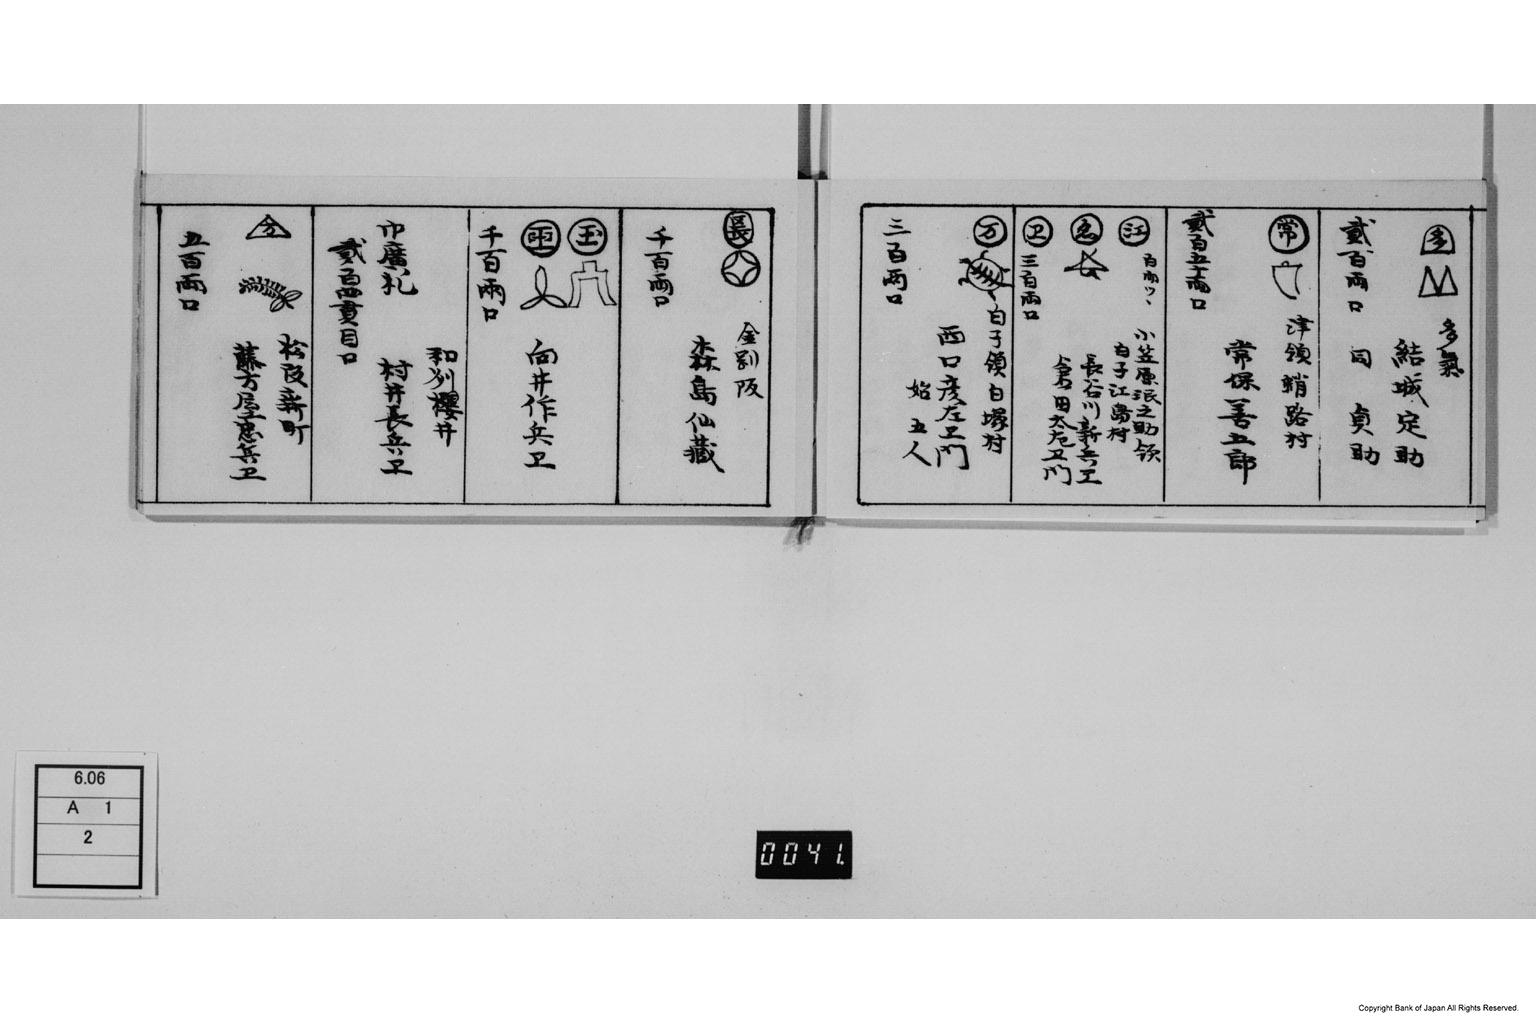 多
多氣
結城定助
同 貞助
貳百両口
常
津領蛸路村
常保善五郎
貳百五十両口
江
百両ツヽ
小笠原派之助領
白子江島村
忠
長谷川新兵衛
倉田太左衛門
卫
三百両口
万
白子領白塚村
西口彦左卫門
始 五人
三百両口
長
金剛阪
森島仙藏
千百両口
玉
向井作兵卫
千百両口
和州櫻井
村井長兵卫
巾廣札
貳百四貫目口
方
松阪新町
藤方屋忠兵卫
五百両口
6.06
A 1
2
0041.
Copyright Bank of Japan All Rights Reserved.